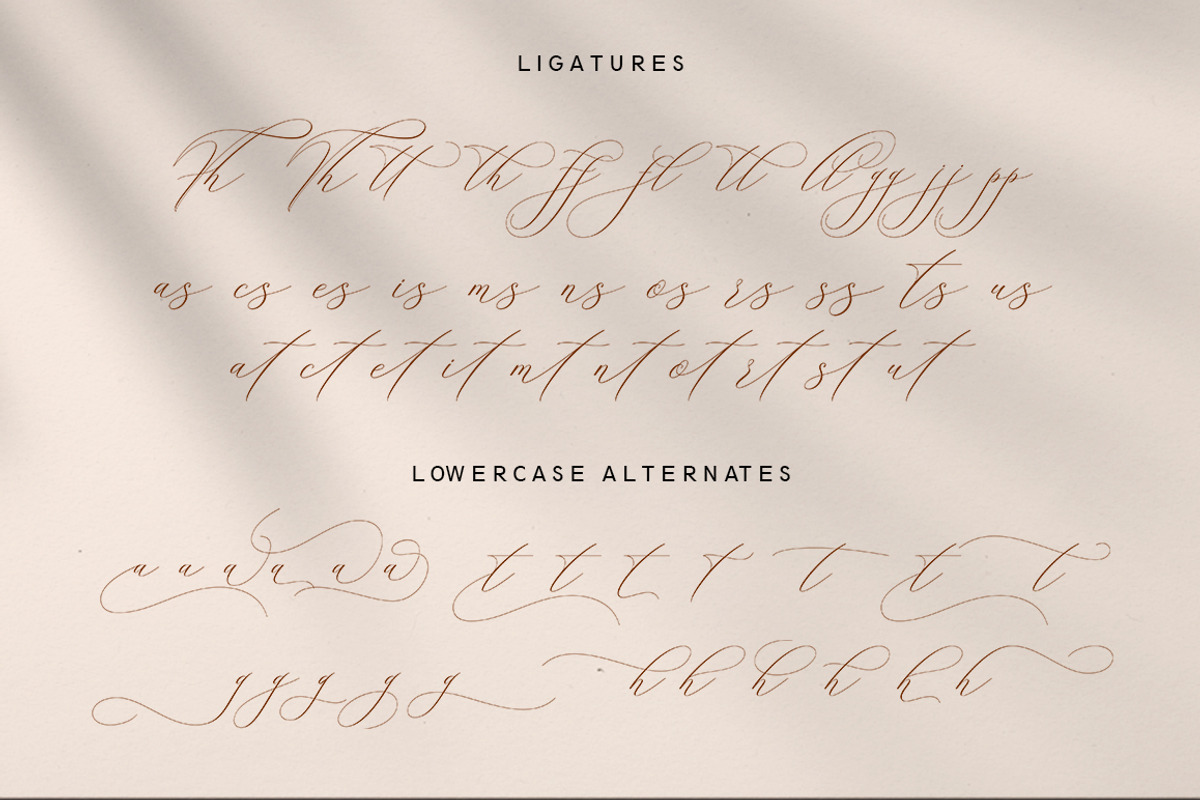 LIGATURES
Th Th tt th ff fl tt ll gg jj pp
as cs es is ms ns os rs ss ts us
at ct et it mt nt ot rt st ut
LOWERCASE ALTERNATES
a a a a a a t t t t t t t
g g g g g h h h h h h